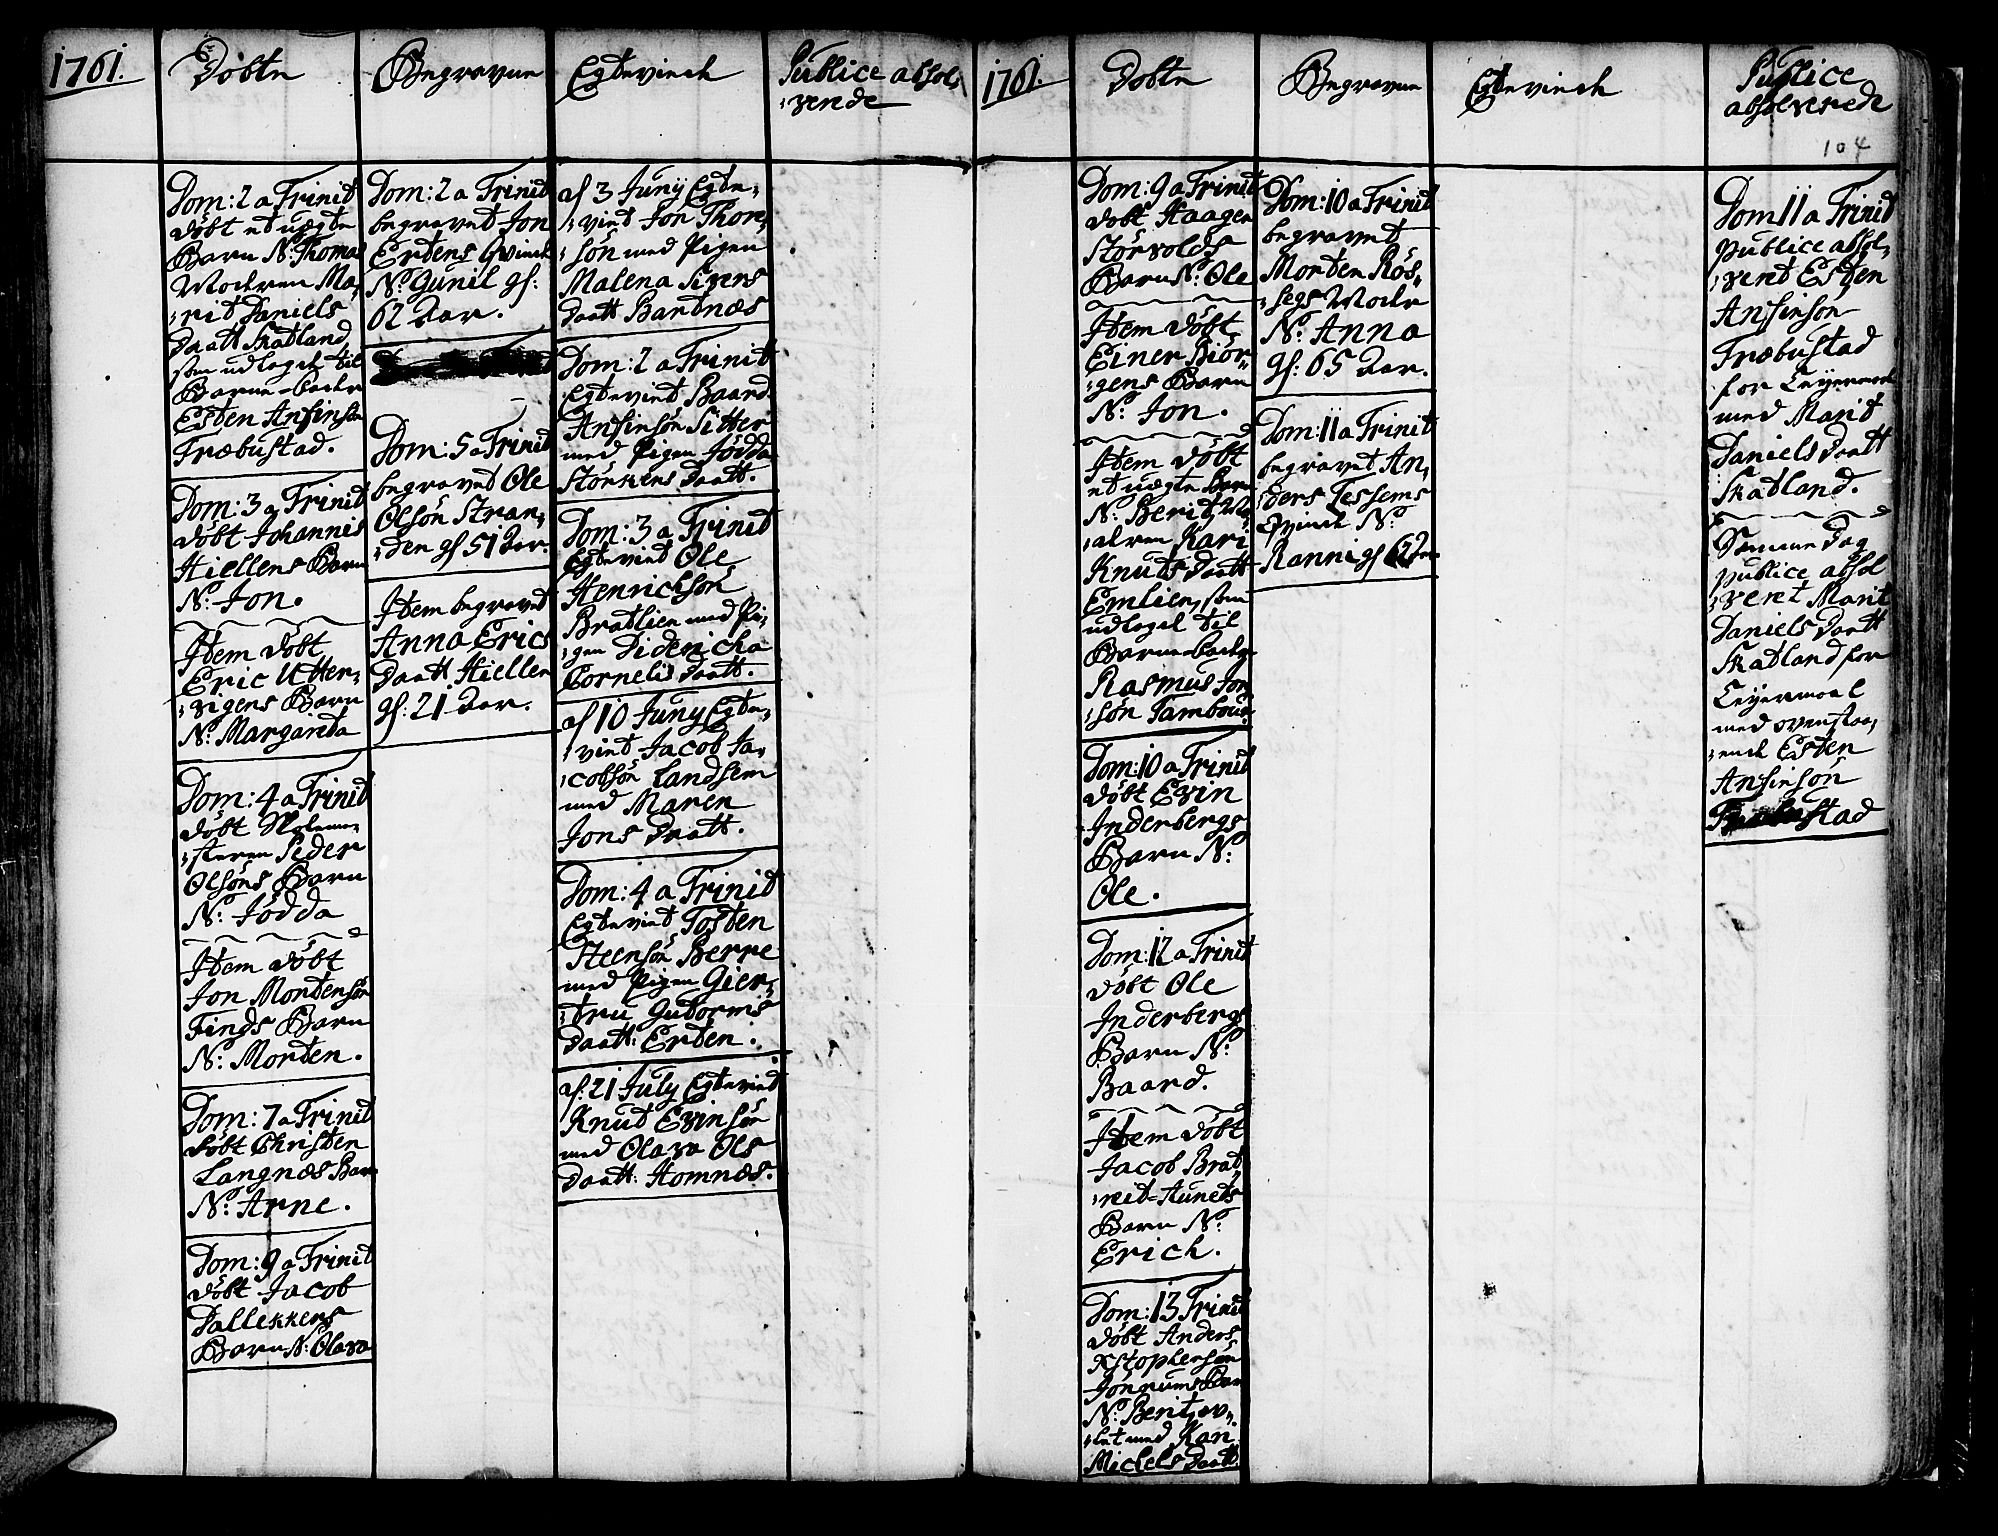 1761.
Döbte
Begravne
Egteviede
Publice absol,
,verede
Dom: 2 a Trinit
döbt et uægte
Barn N: Thoma
Moderen Ma,
,rit Daniels
Daatt Skatland
som udlagde til
Barne-Fader
Esten Ansinsön
Træbustad.
Dom: 3 a Trinit
döbt Johannis
Hiellens Barn
N: Jon.
Item döbt
Eric Utter,
,vigens Barn
N: Margareta
Dom: 4 a Trinit
döbt Skoleme,
,steren Peder
Olsöns Barn
N: Jödda
Item döbt
Jon Mortensön
Finds Barn
N: Morten.
Dom: 7 a Trinit
döbt Christen
Langnæs Barn
N: Arne.
Dom: 9 a Trinit
döbt Jacob
Dallekkens
Barn N: Olava
Dom: 2 a Trinit
begravet Jon
Erdens Qvinde
N: Gunil gl:
62 Aar.
Dom: 5 a Trinit
begravet Ole
Olsön Stran,
,den gl 51 Aar.
Item begravet
Anna Erics
Daatt Hiellen
gl: 21 Aar.
af 3 Juny Egte,
,viet Jon Thor,
,sön med Pigen
Malena Sivers
Daatt Bardnæs
Dom: 2 a Trinit
Egteviet Baard
Ansinsön Sitter
med Pigen Jödda
Störkers Daatt.
Dom: 3 a Trinit
Egteviet Ole
Henrichsön
Bratlien med Pi,
,gen Didericha
Cornelis Daatt.
af 10 Juny Egte,
,viet Jacob Ja,
,cobsön Landsem
med Maren
Jons Daatt.
Dom: 4 a Trinit
Egteviet Tosten
Steensön Berre
med Pigen Gier,
,tru Gutorms
Daatt: Erden.
af: 21 July Egteviet
Knud Evinsön
med Olava Ols
Daatt: Homnæs.
1761.
Döbte
Begravne
Egteviede
Publice
absolverede
104
Dom: 9 a Trinit
döbt Haagen
Störvolds
Barn N: Ole
Item döbt
Einer Biör,
,gens Barn
N: Jon.
Item döbt
et uægte Barn
N: Berit, Mo,
,deren Kari
Knuts Daatt
Emlien, som
udlagde til
Barne-Fader
Rasmus Jon
sön Tambour.
Dom: 10 a Trinit
döbt Evin
Inderbergs
Barn N:
Ole.
Dom: 12 a Trinit
döbt Ole
Inderbergs
Barn N:
Baard.
Item döbt
Jacob Brat,
,reit-Aunets
Barn N:
Erich.
Dom: 13 Trinit
döbt Anders
Xstophersön
Jönnums Barn
N: Berit, av,
,let med Kari
Michels Daatt.
Dom: 10 a Trinit
begravet
Morten Rös,
,segs Moder
N: Anna
gl: 65 Aar.
Dom: 11 a Trinit
begravet An,
,ders Tessems
Qvinde N:
Ranni gl 62 Aar
Dom 11 a Trinit
publice absol,
,veret Esten
Ansinsön
Træbustad
for Leyermaal
med Marit
Daniels Daatt
Skatland.
Samme Dag
publice absol
,veret Marit
Daniels Daatt
Skatland for
Leyermaal
med ovenstaa,
,ende Esten
Ansinsön
Træbustad